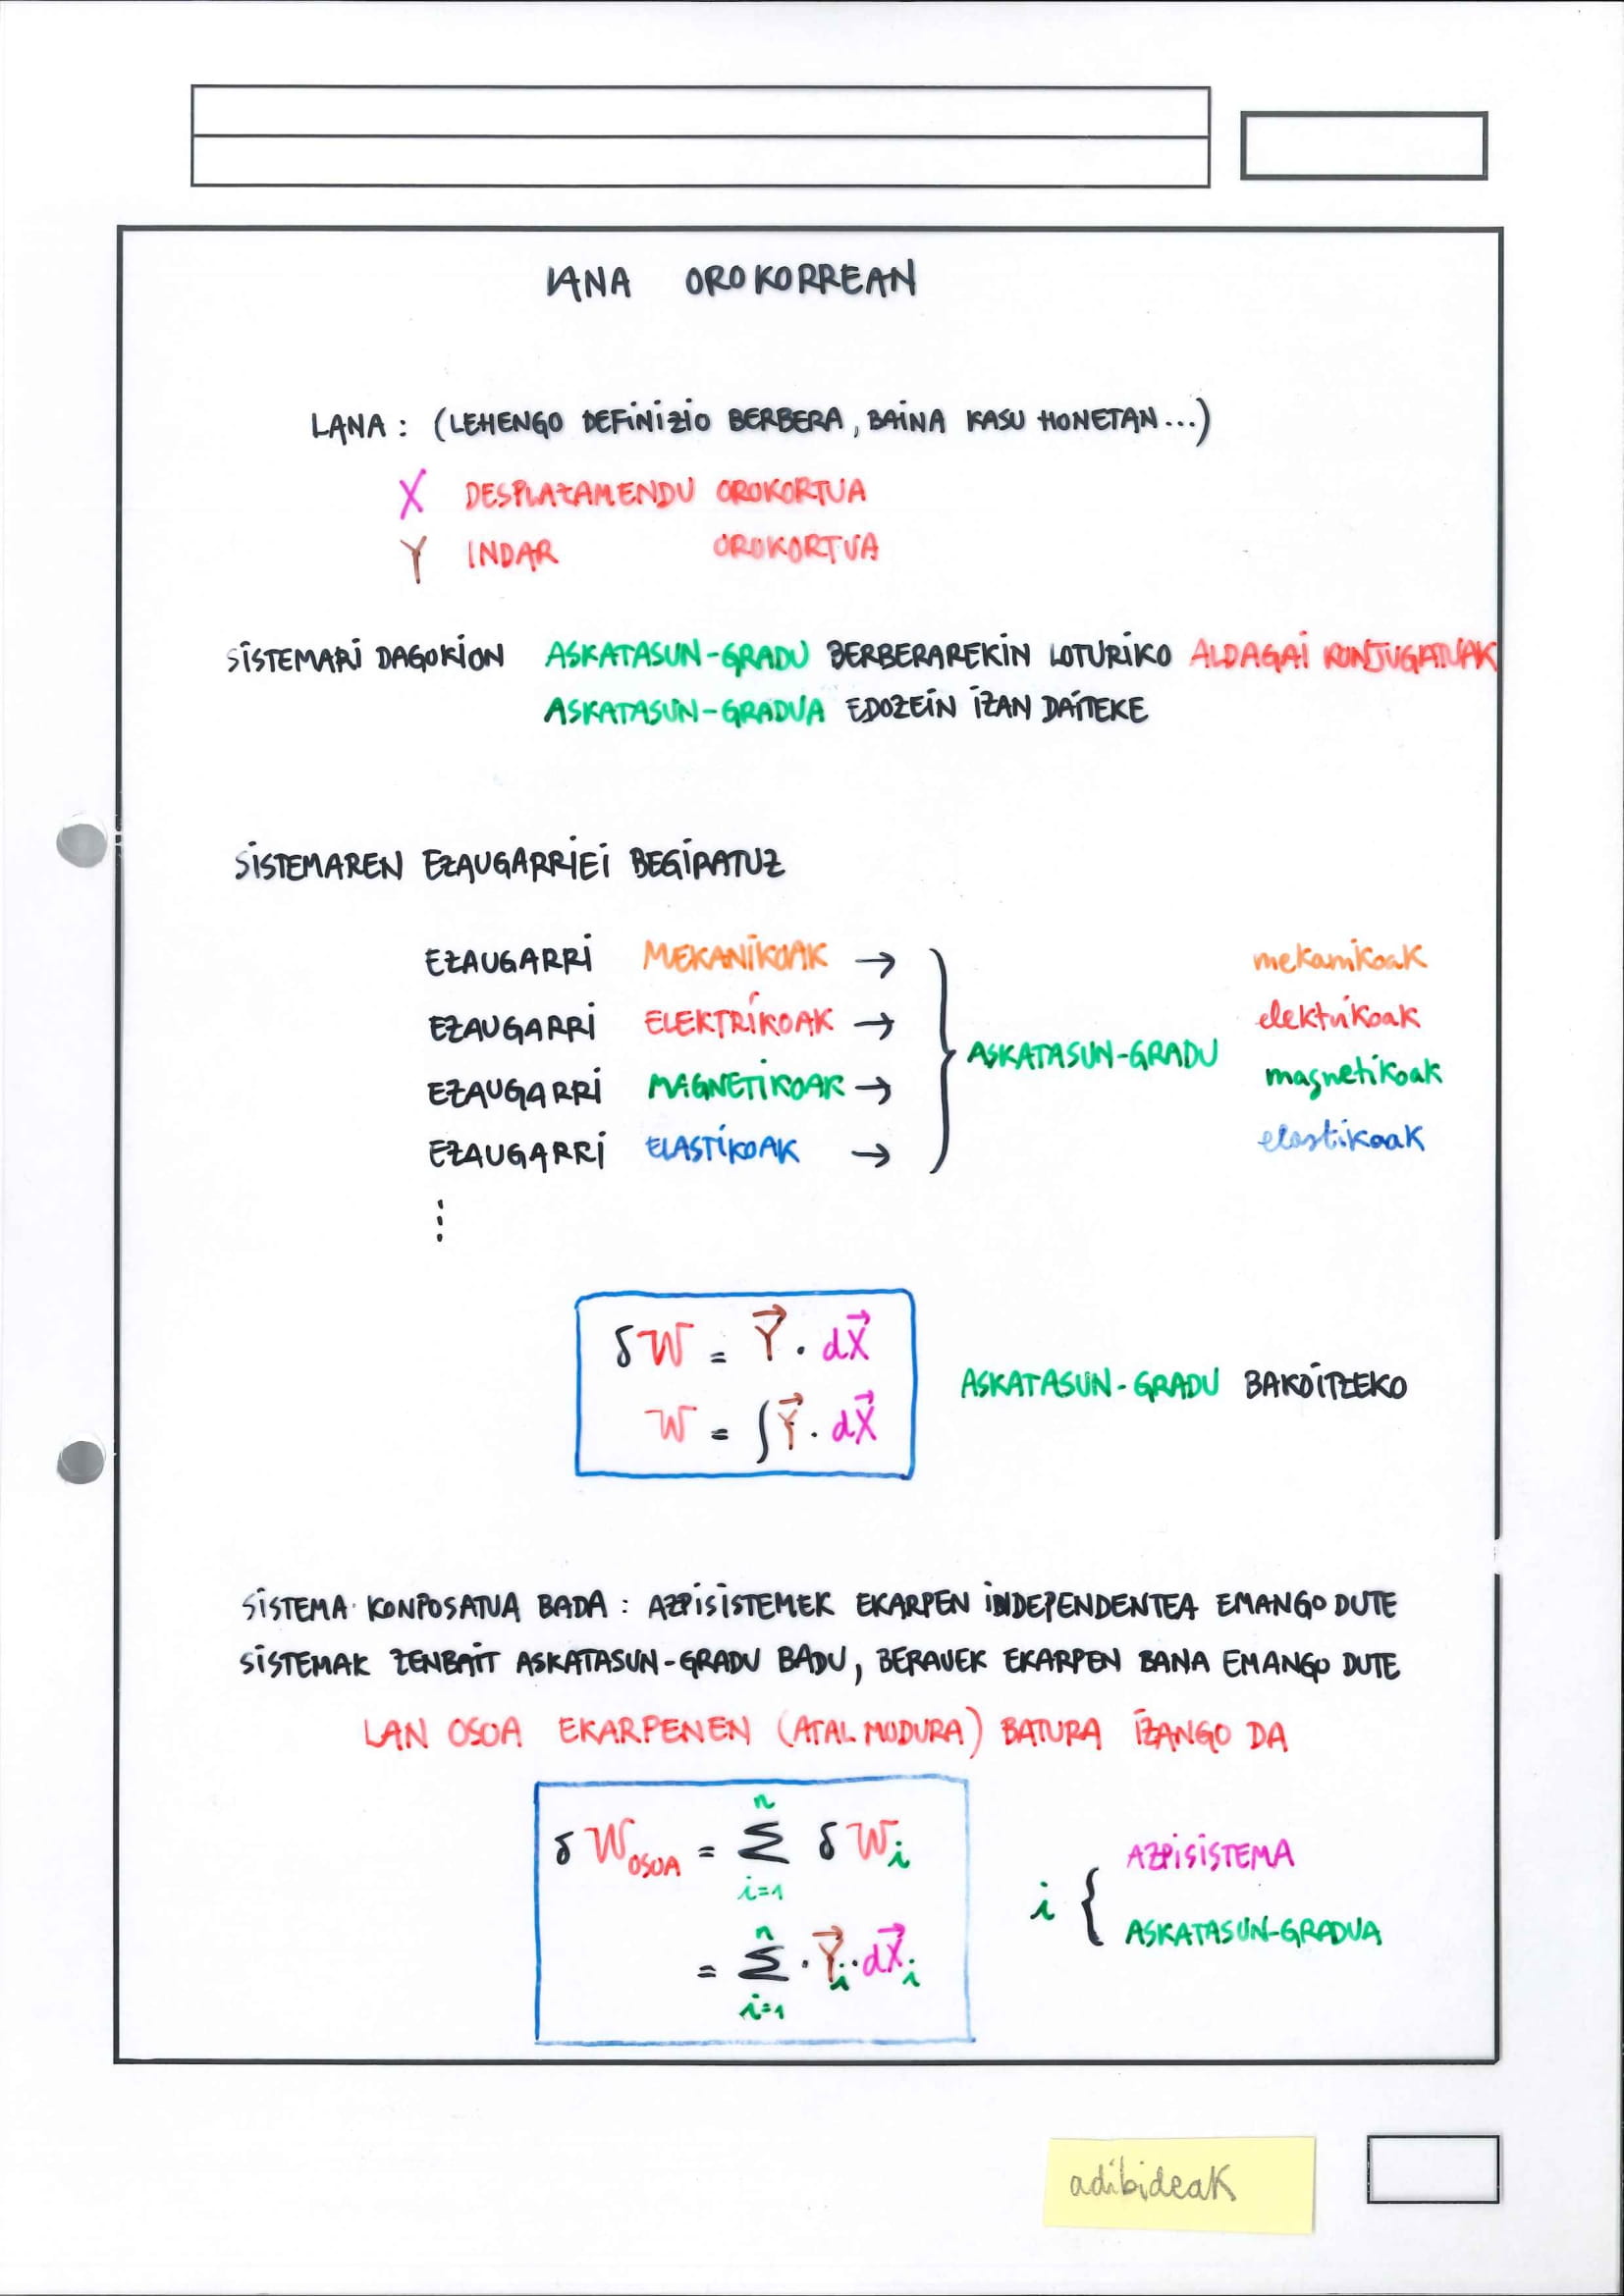 LANA OROKORREAN
LANA : (LEHENGO DEFINIZIO BERBERA, BAINA KASU HONETAN...)
X DESPLAZAMENDU OROKORTUA
Y INDAR OROKORTUA
SISTEMARI DAGOKION ASKATASUN-GRADU BERBERAREKIN LOTURIKO ALDAGAI KONJUGATUAK
ASKATASUN-GRADUA EDOZEIN IZAN DAITEKE
SISTEMAREN EZAUGARRIEI BEGIRATUZ
EZAUGARRI MEKANIKOAK → mekanikoak
EZAUGARRI ELEKTRIKOAK → elektrikoak
ASKATASUN-GRADU
EZAUGARRI MAGNETIKOAK → magnetikoak
EZAUGARRI ELASTIKOAK → elastikoak
⋮
δW = Y⃗ · dX⃗
ASKATASUN-GRADU BAKOITZEKO
W = ∫ Y⃗ · dX⃗
SISTEMA KONPOSATUA BADA : AZPISISTEMEK EKARPEN INDEPENDENTEA EMANGO DUTE
SISTEMAK ZENBAIT ASKATASUN-GRADU BADU, BERAUEK EKARPEN BANA EMANGO DUTE
LAN OSOA EKARPENEN (ATAL MODURA) BATURA IZANGO DA
δW_OSOA = Σ_{i=1}^{n} δW_i
i { AZPISISTEMA
ASKATASUN-GRADUA
= Σ_{i=1}^{n} · Y⃗_i · dX⃗_i
adibideak